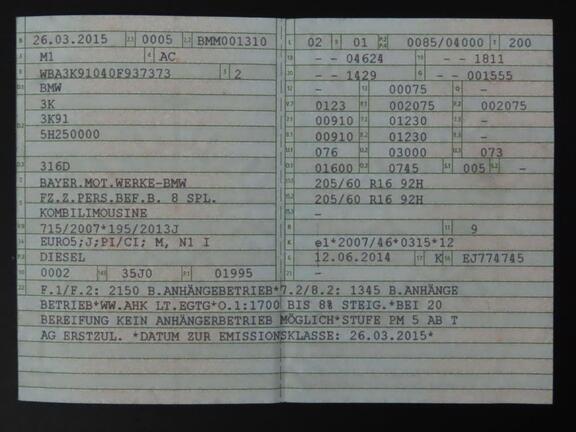 26.03.2015 2.1 0005 2.2 BMM001310
M1 4 AC
WBA3K91040F937373 3 2
BMW
3K
3K91
5H250000
316D
BAYER.MOT.WERKE-BMW
FZ.Z.PERS.BEF.B. 8 SPL.
KOMBILIMOUSINE
715/2007*195/2013J
EURO5;J;PI/CI; M, N1 I
DIESEL
0002 35J0 01995
02 9 01 0085/04000 200
- - 04624 - - 1811
- - 1429 - - 001555
- 00075 -
0123 002075 002075
00910 01230 -
00910 01230 -
076 03000 073
01600 0745 005 -
205/60 R16 92H
205/60 R16 92H
-
- 9
e1*2007/46*0315*12
12.06.2014 K EJ774745
-
F.1/F.2: 2150 B.ANHÄNGEBETRIEB*7.2/8.2: 1345 B.ANHÄNGE
BETRIEB*WW.AHK LT.EGTG*O.1:1700 BIS 8% STEIG.*BEI 20
BEREIFUNG KEIN ANHÄNGERBETRIEB MÖGLICH*STUFE PM 5 AB T
AG ERSTZUL. *DATUM ZUR EMISSIONSKLASSE: 26.03.2015*